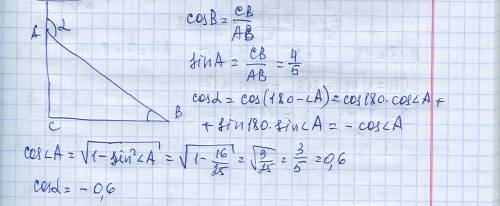 A α
C B
cosB = CB/AB
sinA = CB/AB = 4/5
cosα = cos(180-∠A) = cos180·cos∠A +
+ sin180·sin∠A = -cos∠A
cos∠A = √(1-sin²∠A) = √(1-16/25) = √(9/25) = 3/5 = 0,6
cosα = -0,6